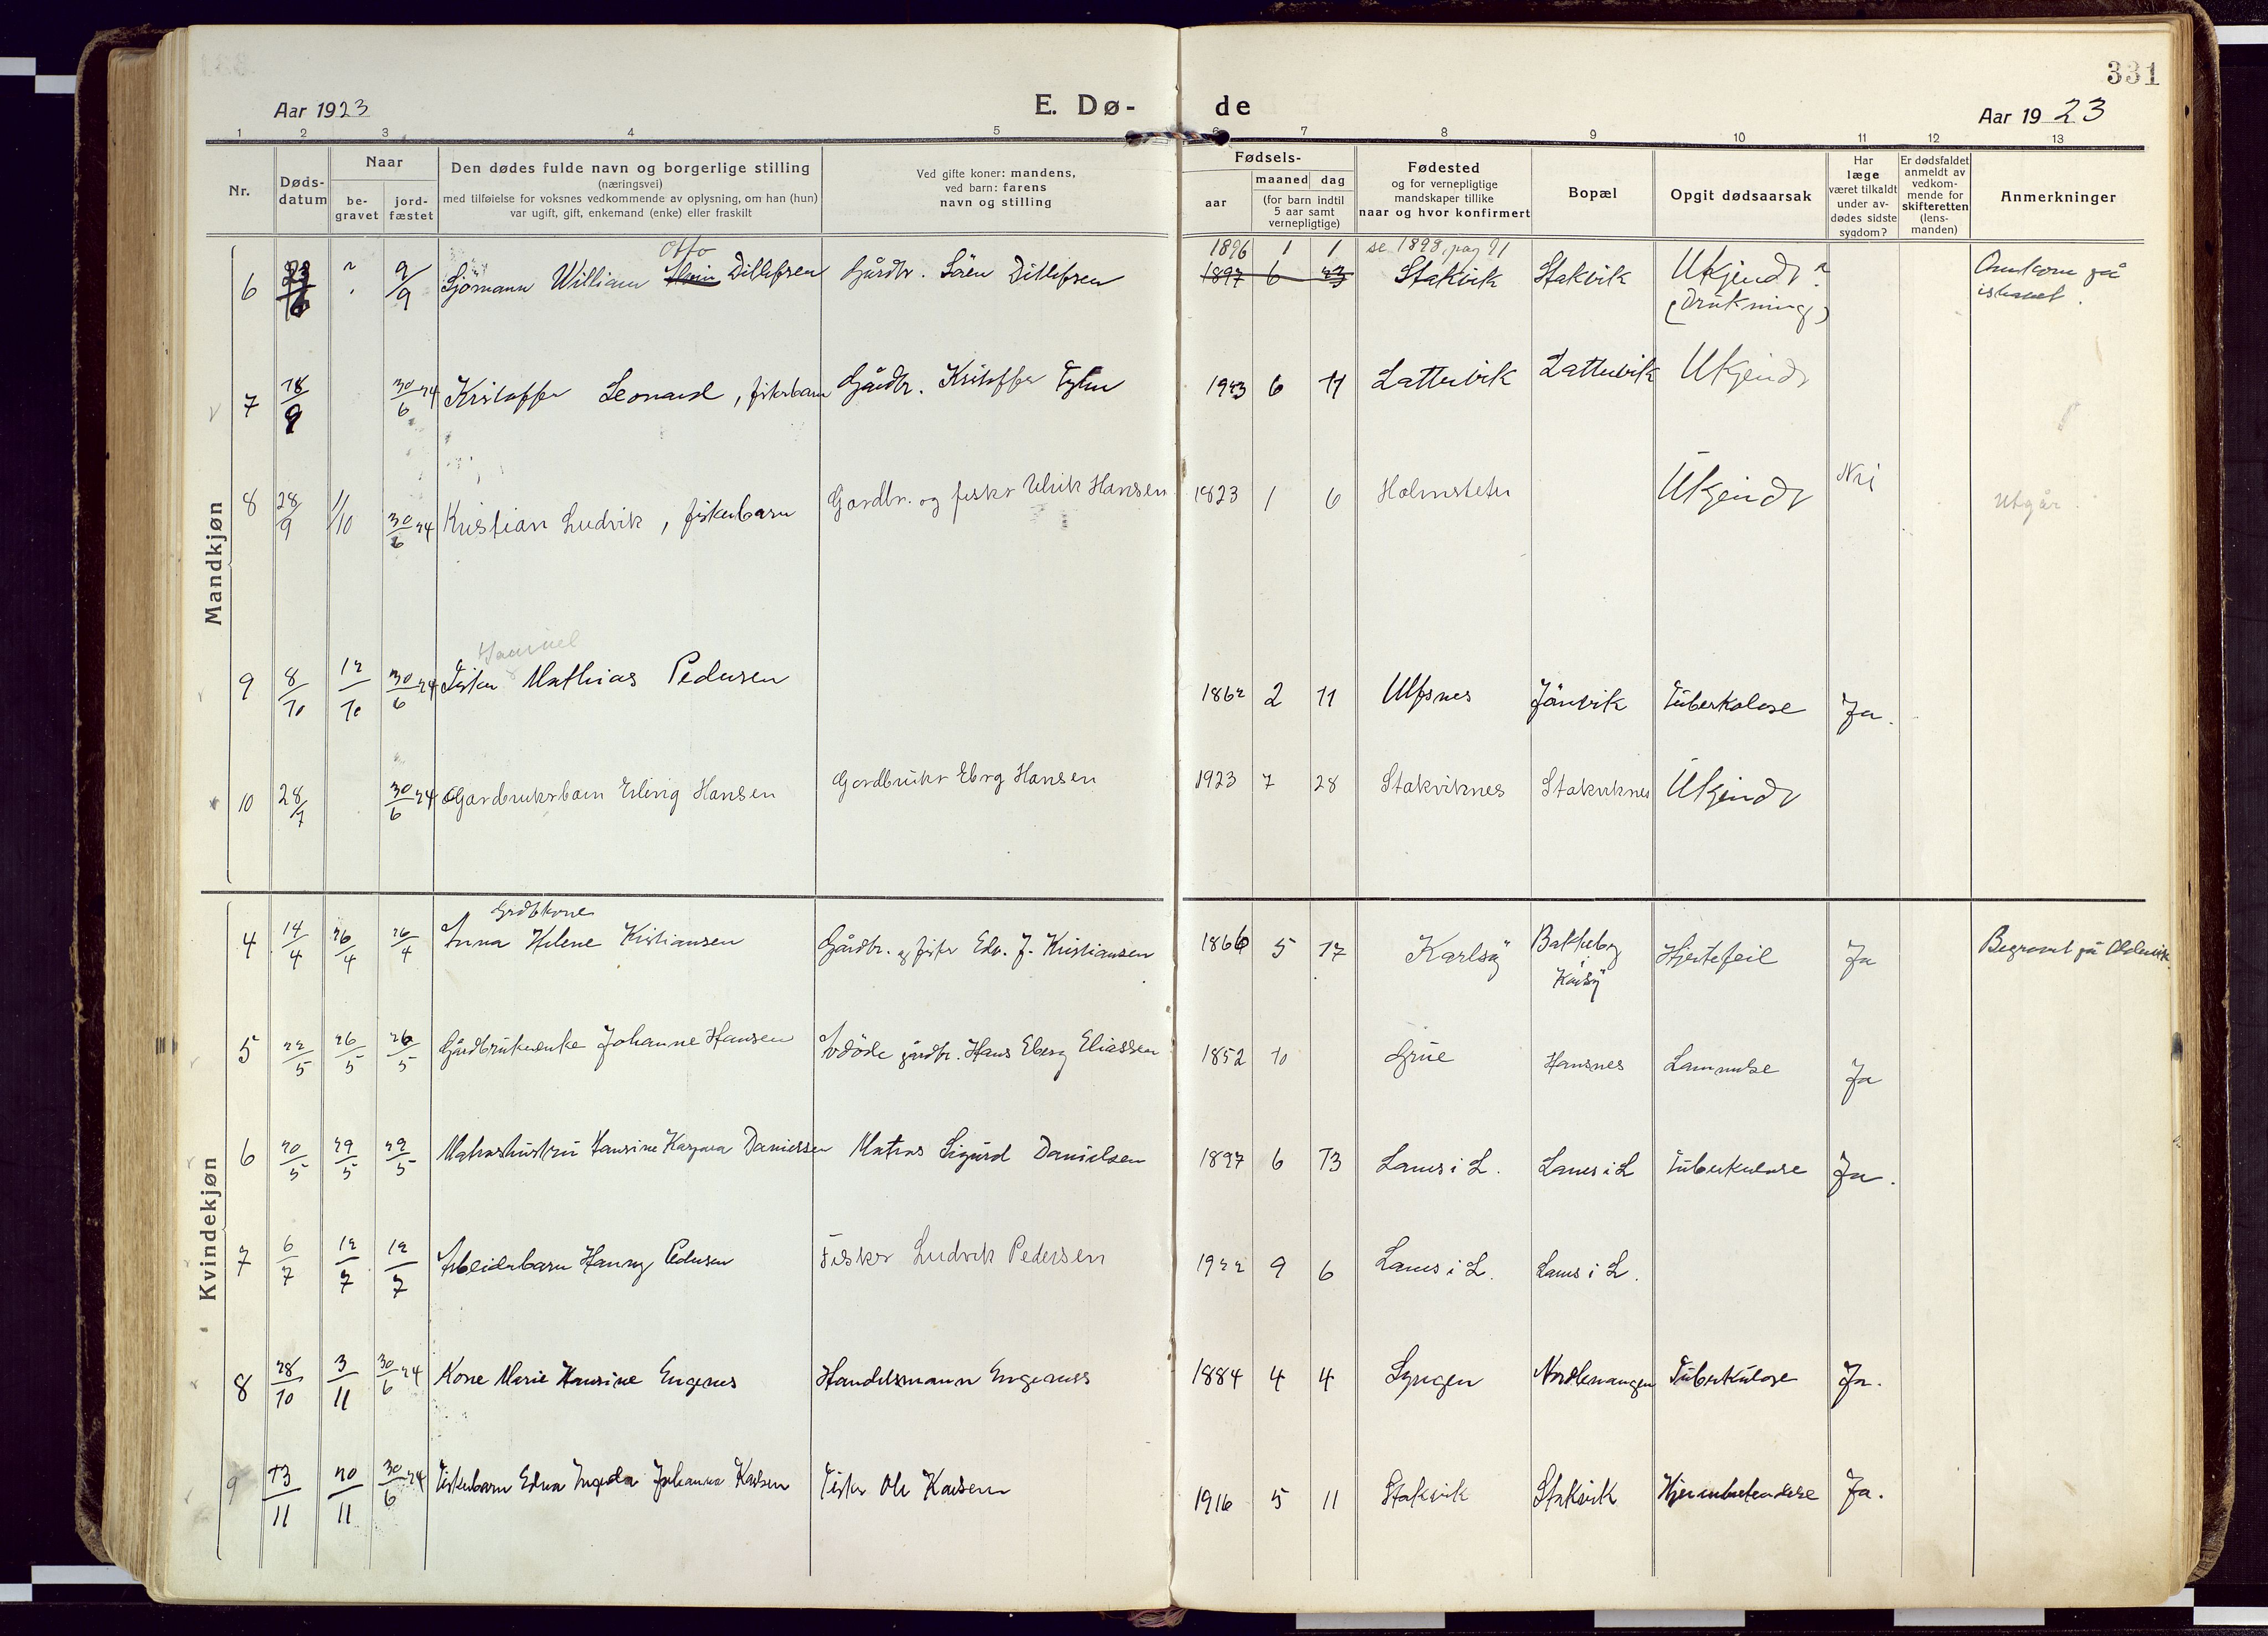 331
Aar 1923
E. Dø-
de
Aar 1923
1 2 3 4 5 6 7 8 9 10 11 12 13
Nr.
Døds-
datum
Naar
be-
gravet
jord-
fæstet
Den dødes fulde navn og borgerlige stilling
(næringsvei)
med tilføielse for voksnes vedkommende av oplysning, om han (hun)
var ugift, gift, enkemand (enke) eller fraskilt
Ved gifte koner: mandens,
ved barn: farens
navn og stilling
Fødsels-
aar
maaned dag
(for barn indtil
5 aar samt
vernepligtige)
Fødested
og for vernepligtige
mandskaper tillike
naar og hvor konfirmert
Bopæl
Opgit dødsaarsak
Har
læge
været tilkaldt
under av-
dødes sidste
sygdom?
Er dødsfaldet
anmeldt av
vedkom-
mende for
skifteretten
(lens-
manden)
Anmerkninger
Mandkjøn
Otto 1896 1 1 se 1898, pag 91
6 ? 9/9 Sjömann William Ditlefsen Gårdbr. Sören Ditlefsen 1897 6 23 Stakvik Stakvik Ukjendt?
(Drukning)
Omkom på
ishavet.
7 18/9 30/6 24 Kristoffer Leonard, fiskerbarn Gårdbr. Kristoffer 1923 6 11 Lattervik Lattervik Ukjendt
8 28/9 1/10 30/6 24 Kristian Ludvik, fiskerbarn Gardbr. og fisker Ulrik Hansen 1823 1 6 Holmsletn Ukjendt Nei Utgår.
9 8/10 12/10 30/6 24 Fisker Mathias Pedersen 1862 2 11 Ulfsnes Jövik Tuberkolose Ja.
10 28/7 30/6 24 Gardbrukerbarn Erling Hansen Gardbruker Eberg Hansen 1923 7 28 Stakviknes Stakviknes Ukjendt
Kvindekjøn
Grdbkone
4 14/4 26/4 26/4 Anna Helene Kristiansen Gårdbr. og fisker Edv. J. Kristiansen 1866 5 17 Karlsöy Hjertefeil Ja Begravet på Oldervik
Karlsöy
5 22/5 26/5 26/5 Gårdbrukerenke Johanne Hansen Avdöde gårdbr. Hans Eberg Eliassen 1852 10 Grue Hansnes Lammelse Ja
6 20/5 29/5 29/5 Matroshustru Hansine Kaspara Danielsen Matros Sigurd Danielsen 1897 6 13 Lanes i L. Lanes i L Tuberkulose Ja.
7 6/7 12/7 12/7 Arbeiderbarn Hanny Pedersen Fisker Ludvik Pedersen 1922 9 6 Lanes i L. Lanes i L.
8 28/10 3/11 30/6 24 Kone Marie Hansine Engenes Handelsmann Engenes 1884 4 4 Lyngen Nordlenangen Tuberkulose Ja.
9 13/11 20/11 30/6 24 Fiskerbarn Edna Ingeda Johanna Karlsen Fisker Ole Karlsen 1916 5 11 Stakvik Stakvik Hjernebetendelse Ja.